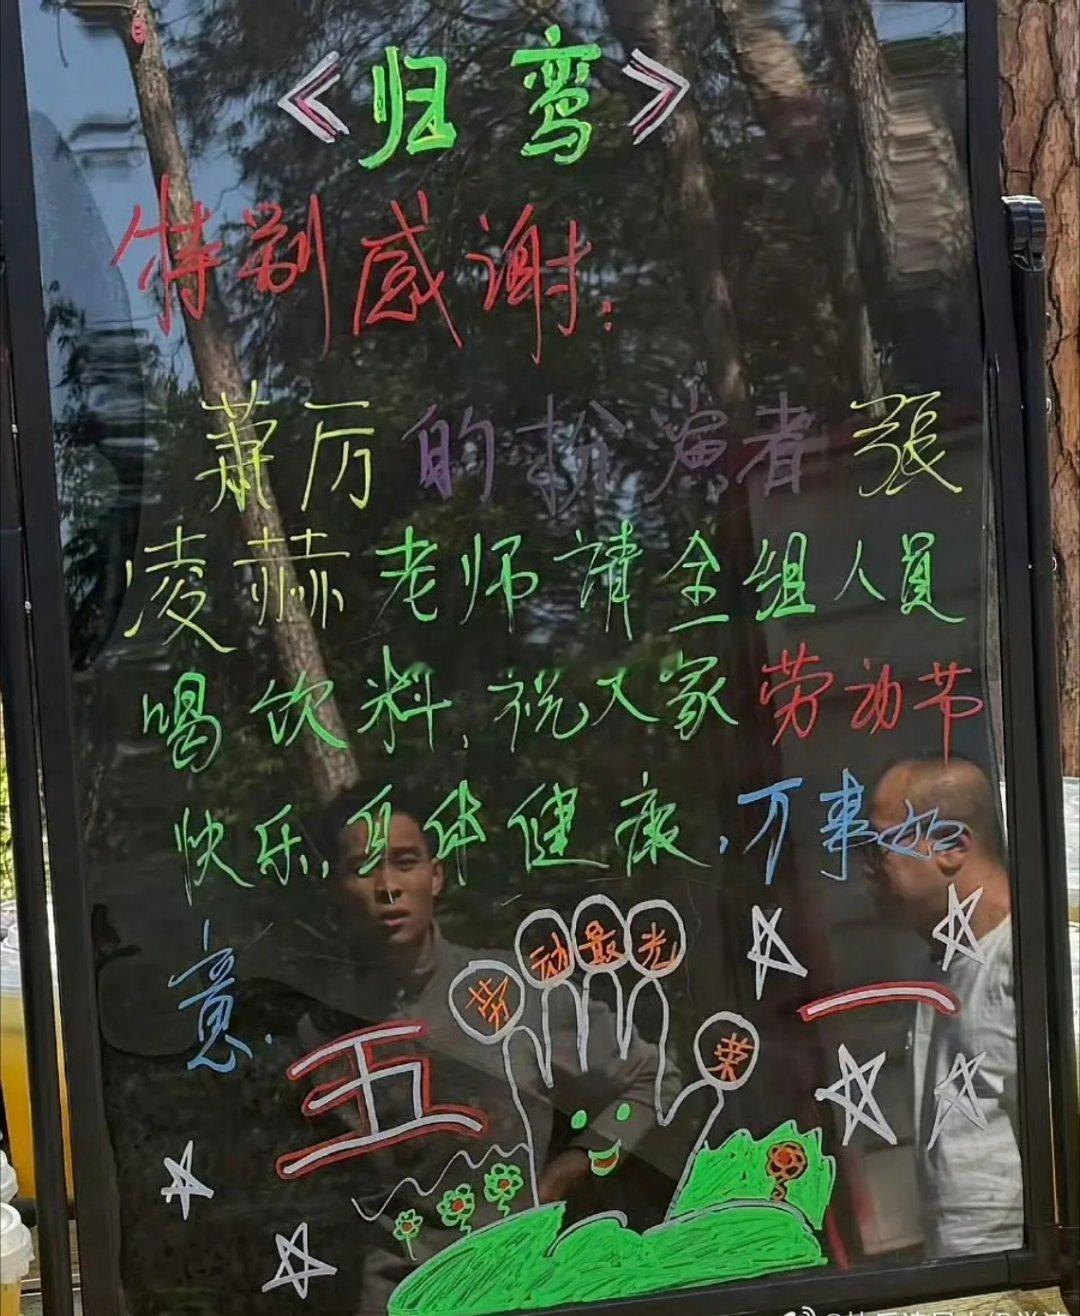 《归鸾》
特别感谢：
萧厉的扮演者張
凌赫老师請全组人員
喝饮料，祝大家劳动节
快乐，身体健康，万事如
意.
劳动最光荣
五一